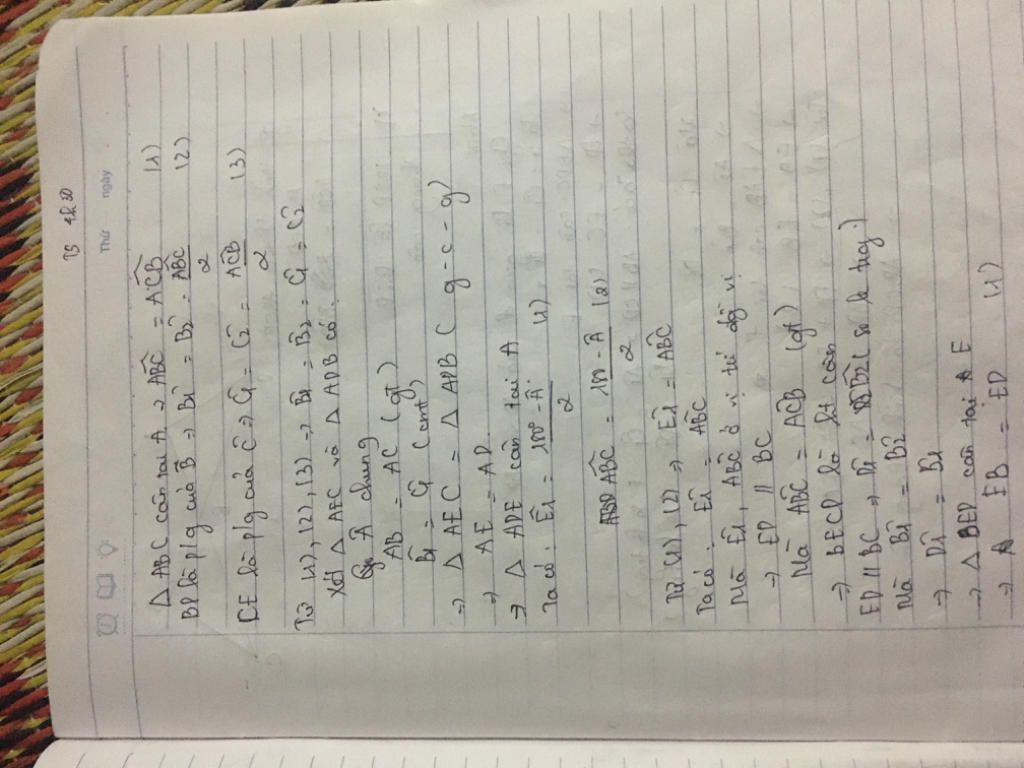 Thứ ngày
Δ ABC cân tại A → ABC = ACB (1)
BD là p/g của B → B1 = B2 = ABC/2 (2)
CE là p/g của C → C1 = C2 = ACB/2 (3)
Từ (1), (2), (3) → B1 = B2 = C1 = C2
Xét Δ AEC và Δ ADB có:
Góc A chung
AB = AC (gt)
B1 = C1 (cmt)
→ Δ AEC = Δ ADB (g-c-g)
→ AE = AD
→ Δ ADE cân tại A
Ta có: E1 = 180° - A/2 (1)
ABC = 180 - A/2 (2)
Từ (1), (2) → E1 = ABC
Ta có: E1 = ABC
Mà E1, ABC ở vị trí đồng vị
→ ED // BC
Mà ABC = ACB (gt)
→ BECD là ht cân
ED // BC → D1 = B2 (so le trog)
Mà B1 = B2
→ D1 = B1
→ Δ BED cân tại E
→ EB = ED (1)